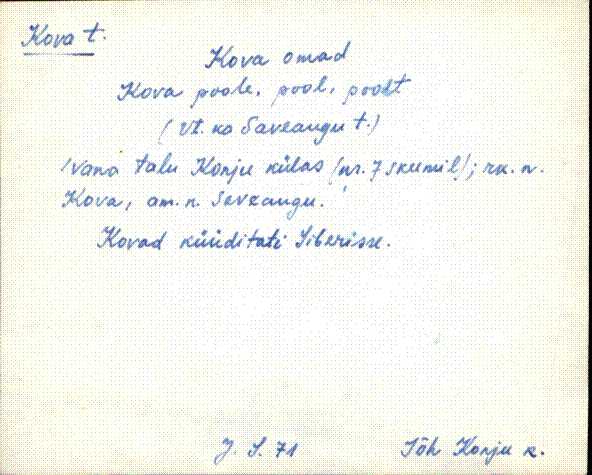 Kova t.
Kova omad
Kova poole, pool, poolt
(Vt. ka Saveaugu t.)
Vana talu Konju külas (nr. 7 skeemil); rk. n.
Kova, am. n. Saveaugu.
Kovad küüditati Siberisse.
J. S. 71 Jõh Konju k.